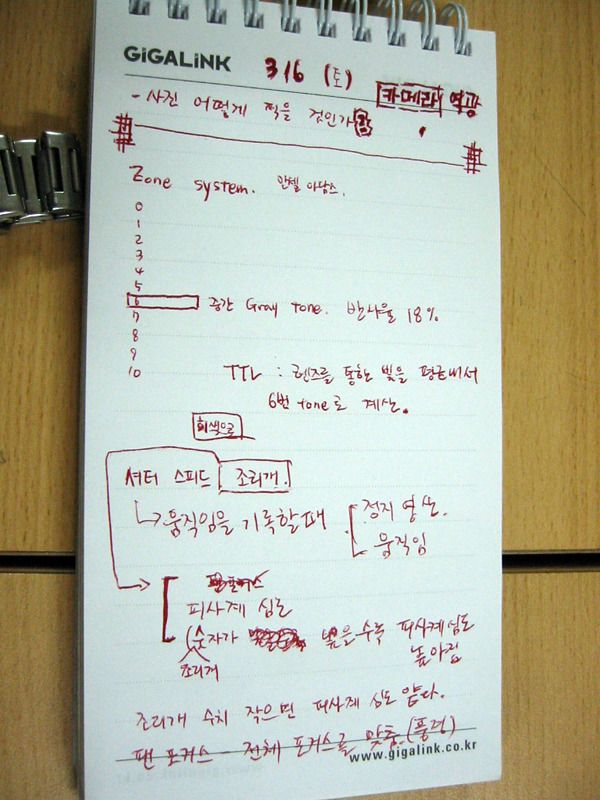 GiGALiNK
316 (토)
카메라 역광
- 사진 어떻게 찍을 것인가
Zone system. 안셀 아담스.
0
1
2
3
4
5
6 중간 Gray tone. 반사율 18%
7
8
9
10
TTL : 렌즈를 통한 빛을 평균내서
6번 tone으로 계산.
회색으로
셔터 스피드 조리개.
움직임을 기록할때
정지 영상.
움직임
피사계 심도
(숫자가 높을수록 피사계심도
높아짐
조리개
조리개 수치 작으면 피사계 심도 얕다.
팬 포커스 - 전체 포커스를 맞춤. (풍경)
www.gigalink.co.kr